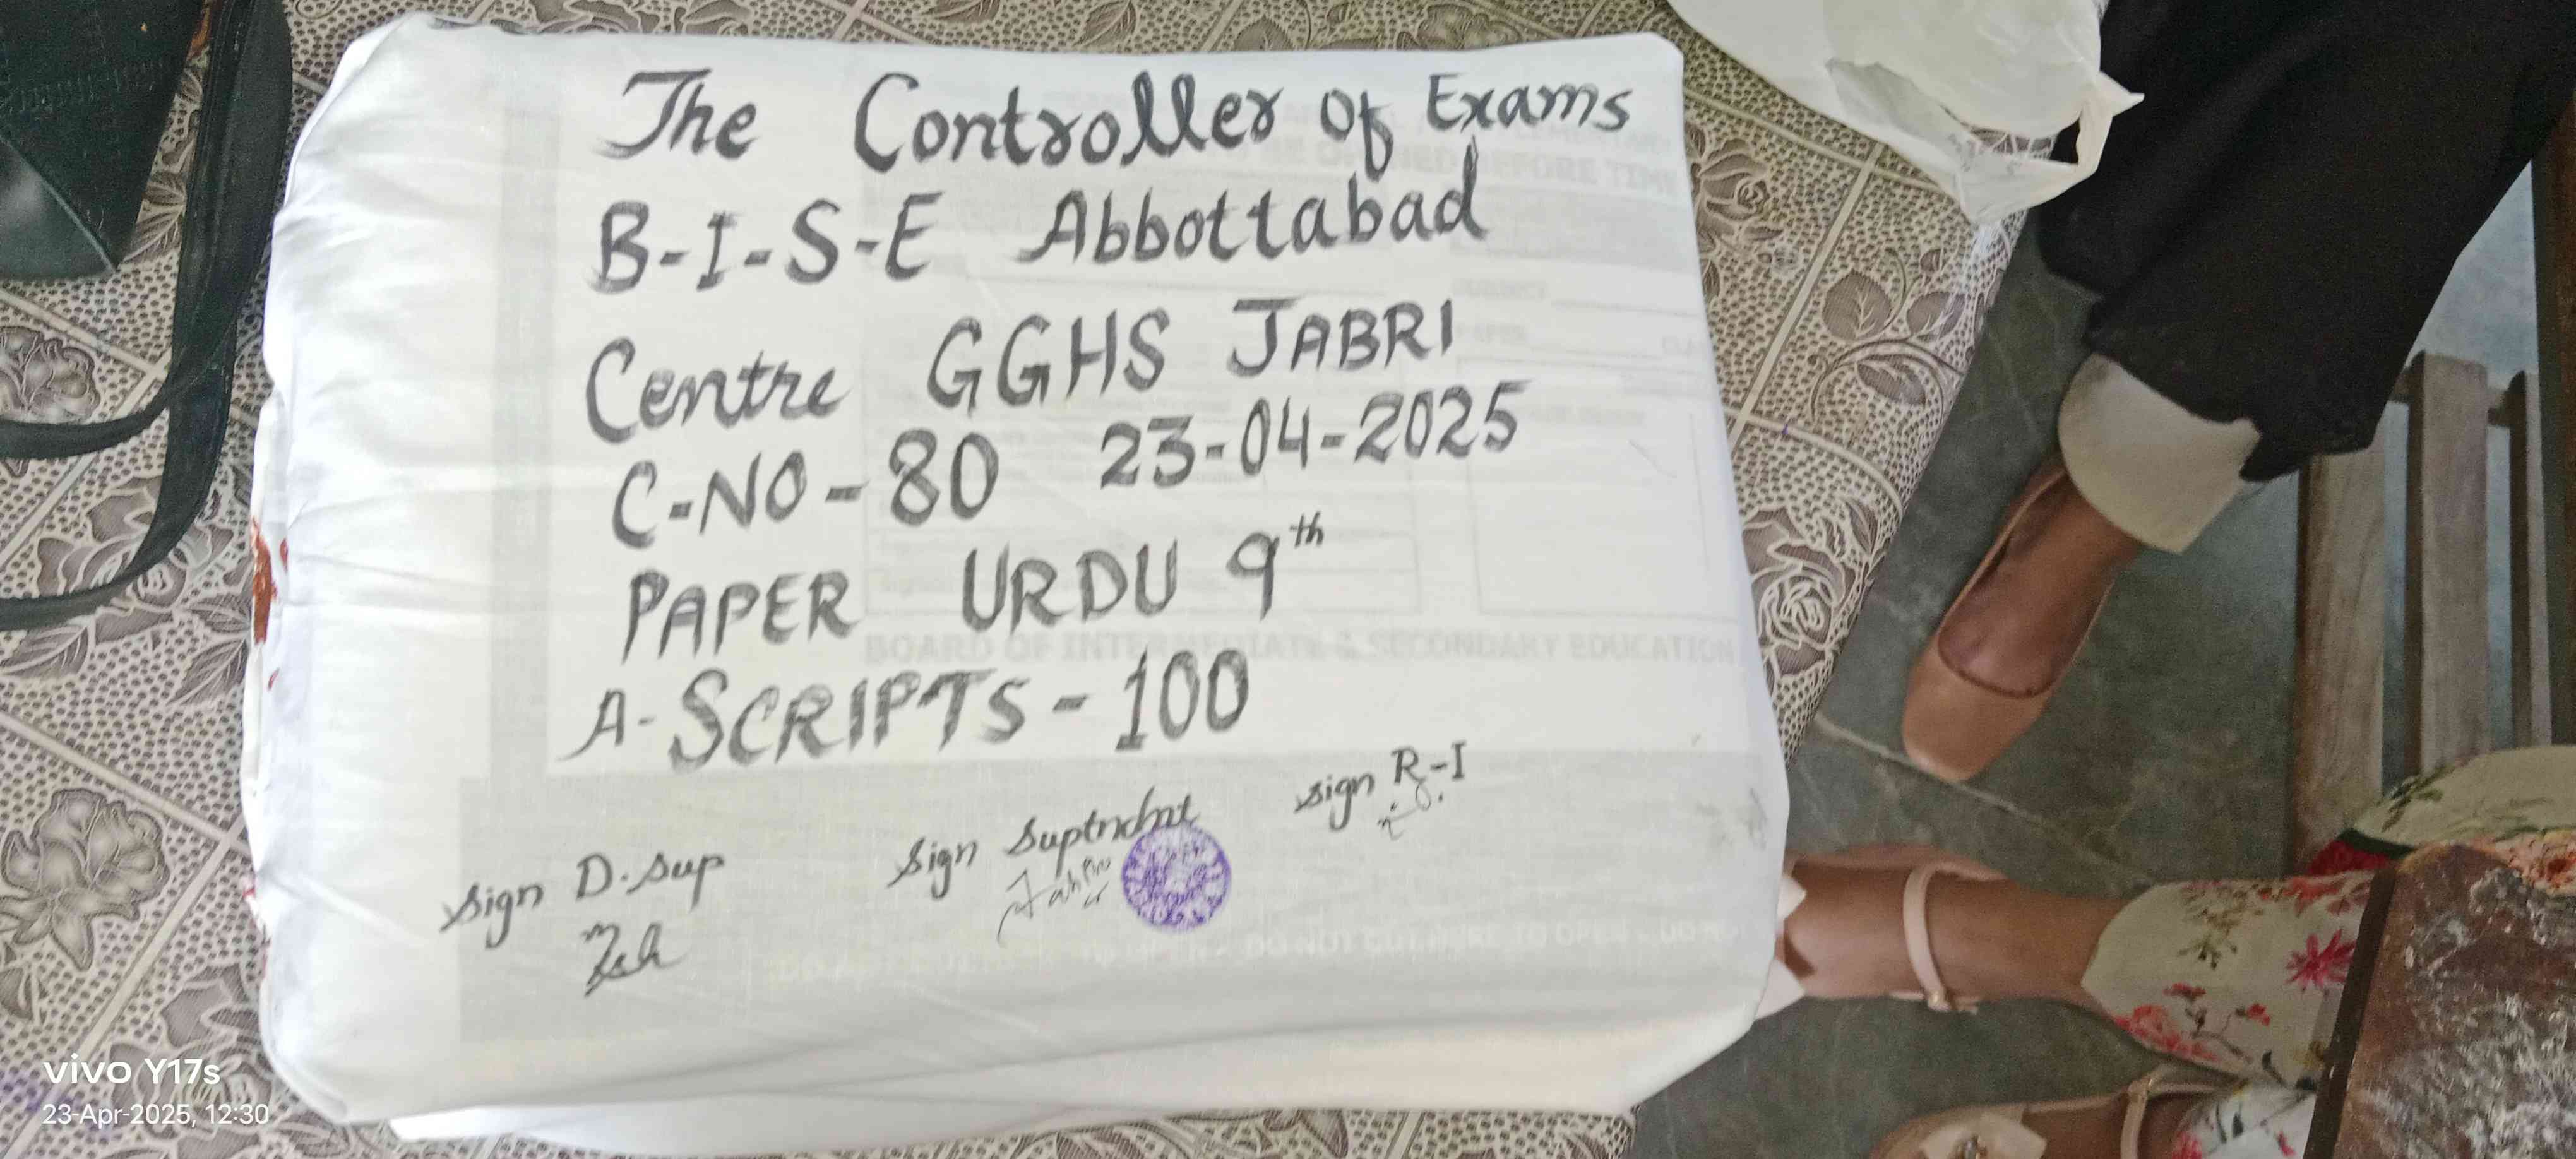 The Controller of Exams
B-I-S-E Abbottabad
Centre GGHS JABRI
C-NO-80 23-04-2025
PAPER URDU 9th
BOARD OF INTERMEDIATE & SECONDARY EDUCATION
A-SCRIPTS-100
sign D.Sup
sign Suptndnt
sign R-I
DO NOT CUT HERE TO OPEN
vivo Y17s
23-Apr-2025, 12:30